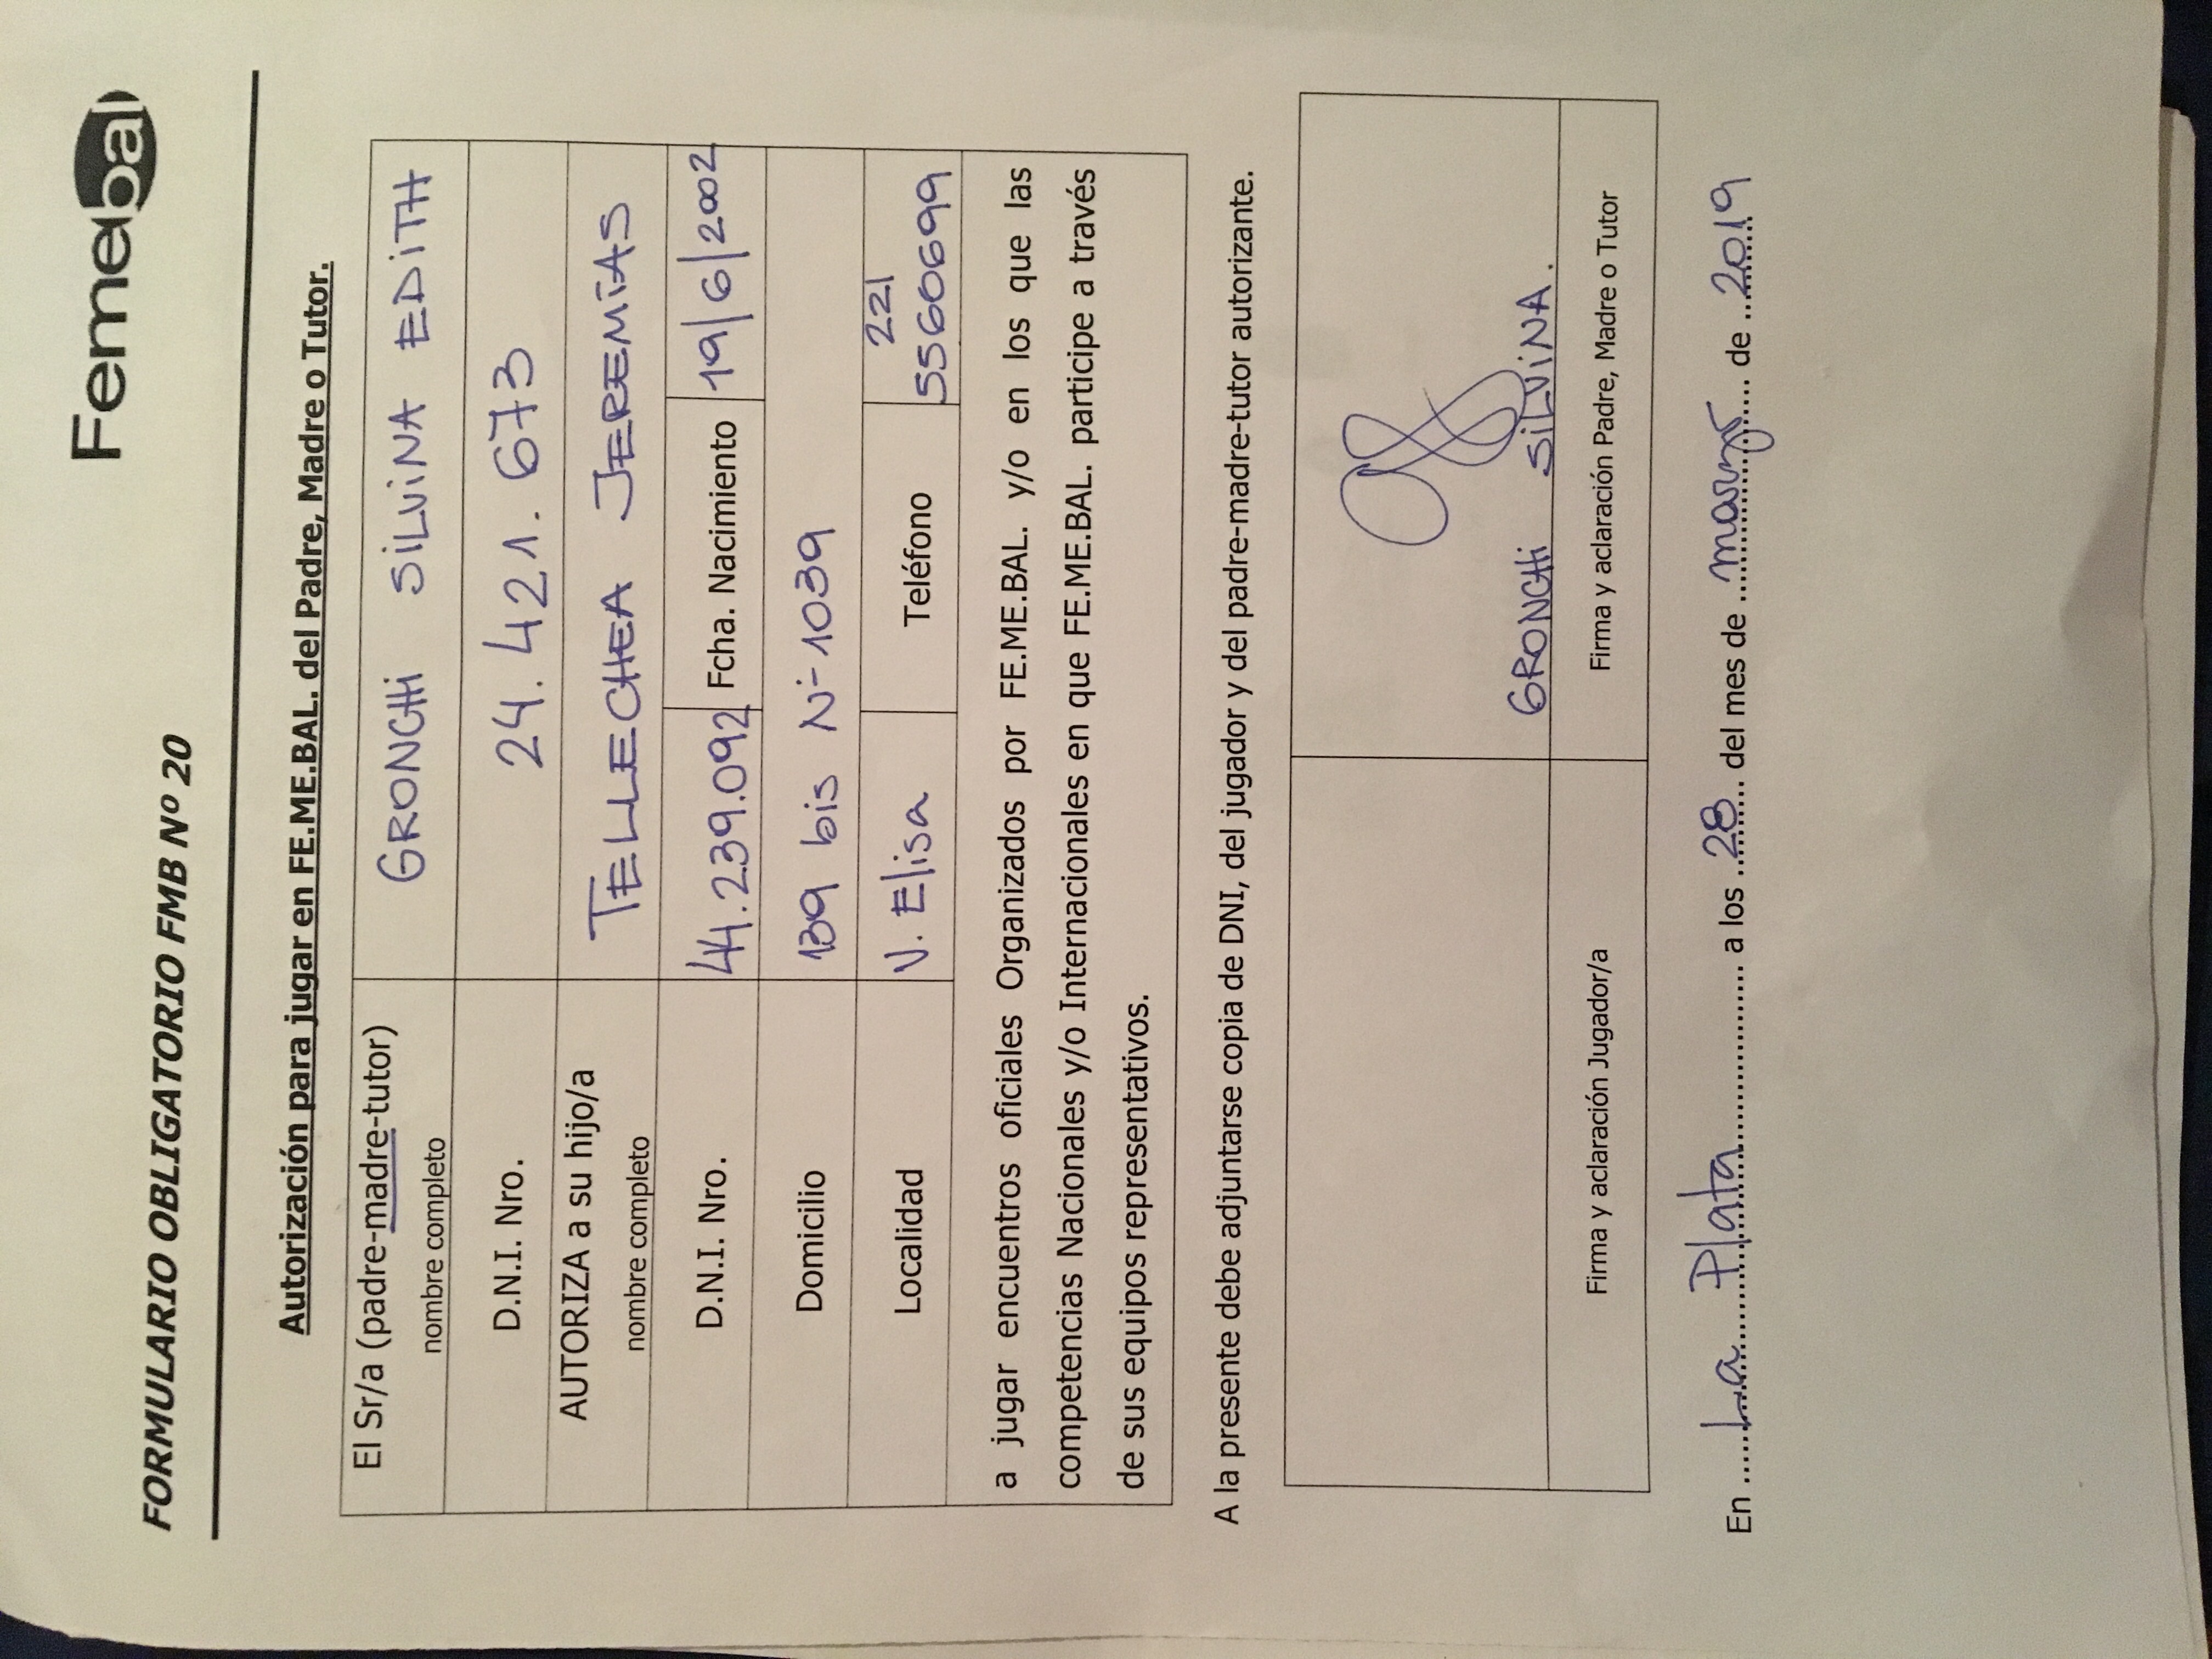 Femebal
FORMULARIO OBLIGATORIO FMB Nº 20
Autorización para jugar en FE.ME.BAL. del Padre, Madre o Tutor.
El Sr/a (padre-madre-tutor) GRONCHi SiLViNA EDiTH
nombre completo
D.N.I. Nro. 24.421.673
AUTORIZA a su hijo/a TELLECHEA JEREMíAS
nombre completo
D.N.I. Nro. 44.239.092 Fcha. Nacimiento 19/6/2002
Domicilio 139 bis Nº 1039
Localidad V. Elisa Teléfono 221
5560699
a jugar encuentros oficiales Organizados por FE.ME.BAL. y/o en los que las
competencias Nacionales y/o Internacionales en que FE.ME.BAL. participe a través
de sus equipos representativos.
A la presente debe adjuntarse copia de DNI, del jugador y del padre-madre-tutor autorizante.
GRONCHi SiLViNA.
Firma y aclaración Jugador/a Firma y aclaración Padre, Madre o Tutor
En ..... La Plata ..... a los ..28... del mes de ...marzo... de ...2019